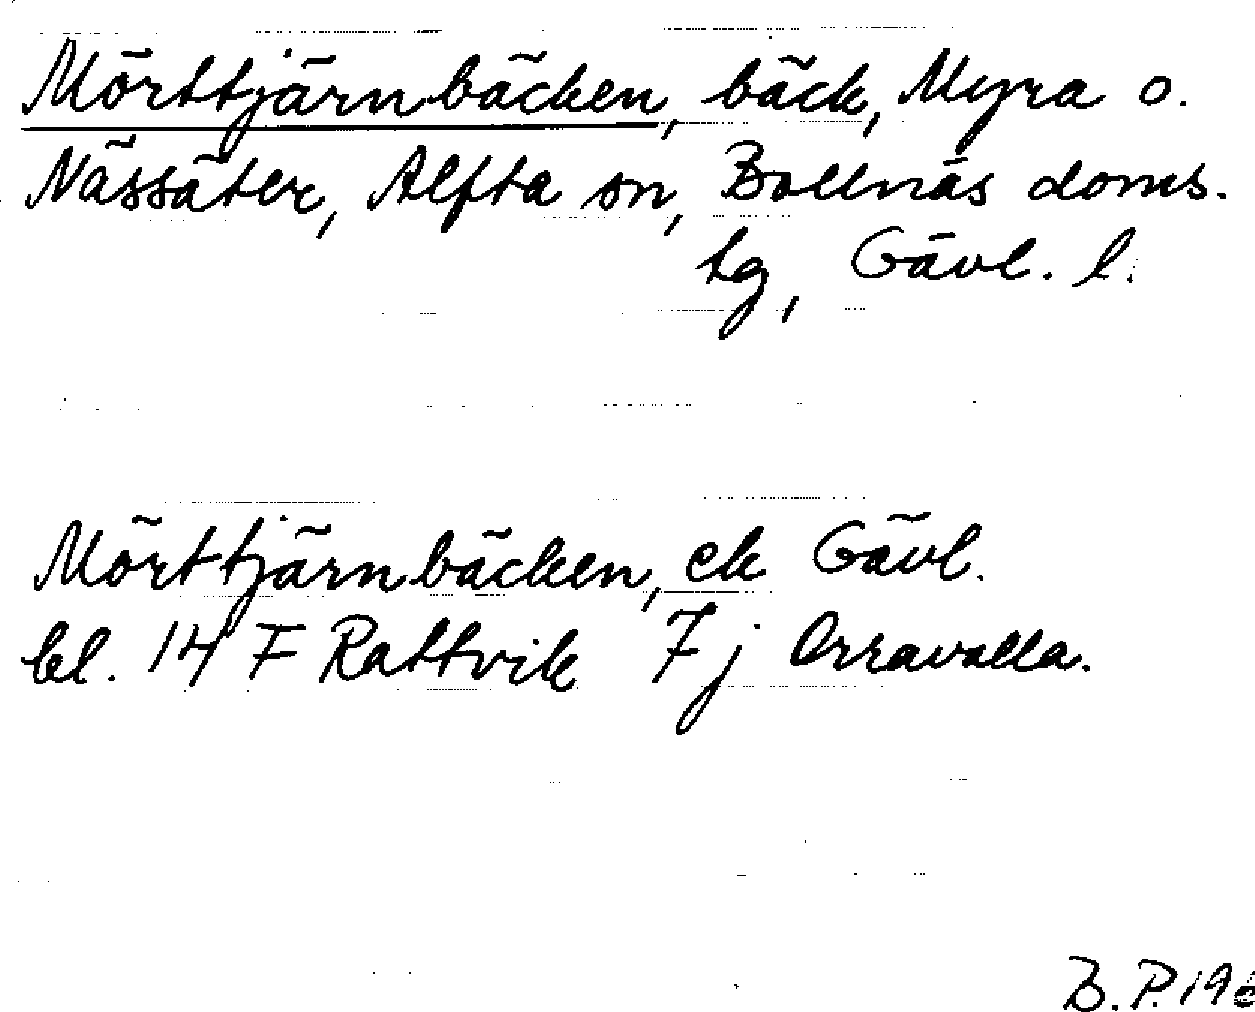 Mörttjärnbäcken, bäck, Myra o.
Nässäter, Alfta sn, Bollnäs doms.
tg, Gävl. l.
Mörttjärnbäcken, ek Gävl.
bl. 14 F Rattvik 7 j Orravalla.
B.P. 196